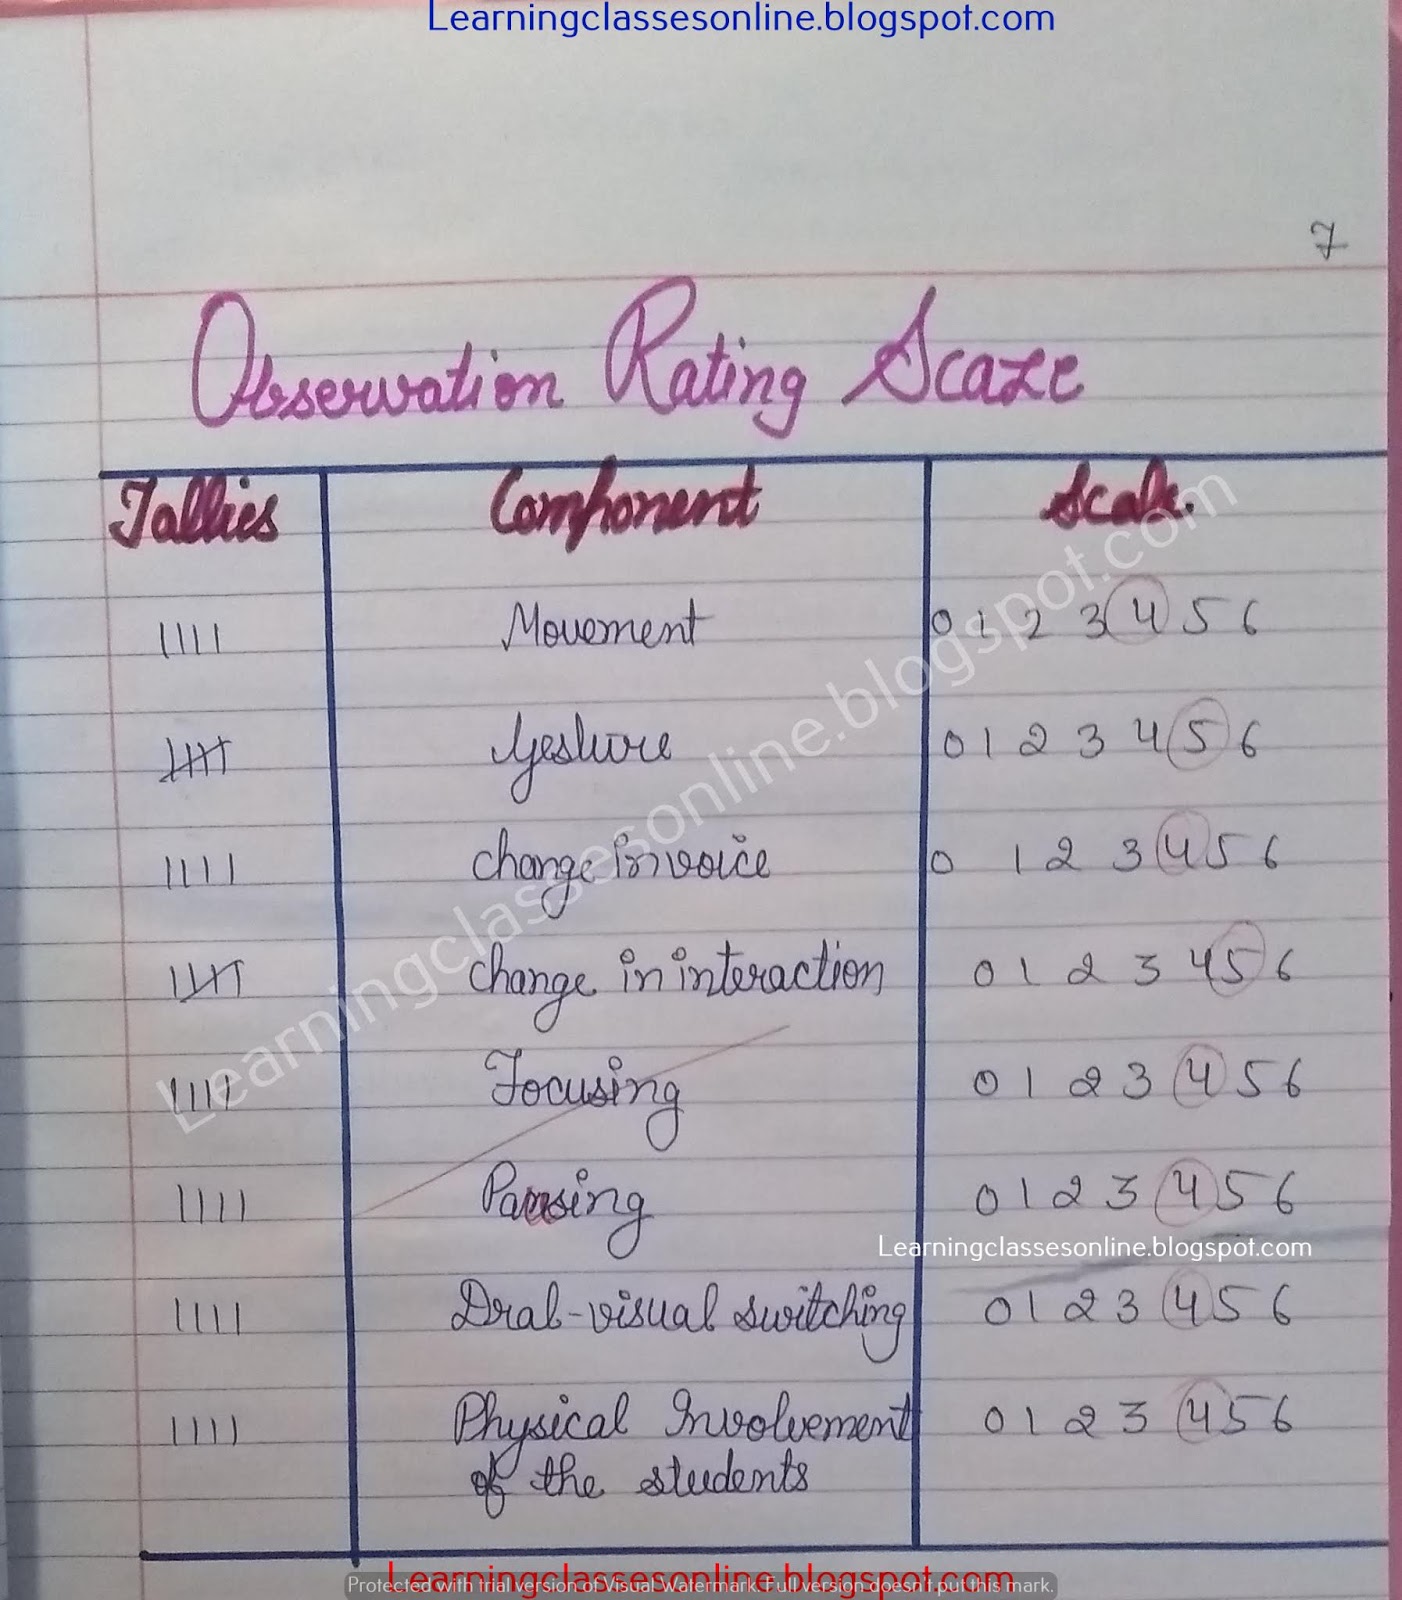 Learningclassesonline.blogspot.com
7
Observation Rating Scale
Tallies Component Scale.
|||| Movement 0 1 2 3 4 5 6
|||| Gesture 0 1 2 3 4 5 6
|||| change in voice 0 1 2 3 4 5 6
|||| change in interaction 0 1 2 3 4 5 6
|||| Focusing 0 1 2 3 4 5 6
|||| Pausing 0 1 2 3 4 5 6
Learningclassesonline.blogspot.com
|||| Oral-visual switching 0 1 2 3 4 5 6
|||| Physical Involvement 0 1 2 3 4 5 6
of the students
Learningclassesonline.blogspot.com
Learningclassesonline.blogspot.com
Protected with trial version of Visual Watermark. Full version doesn't put this mark.